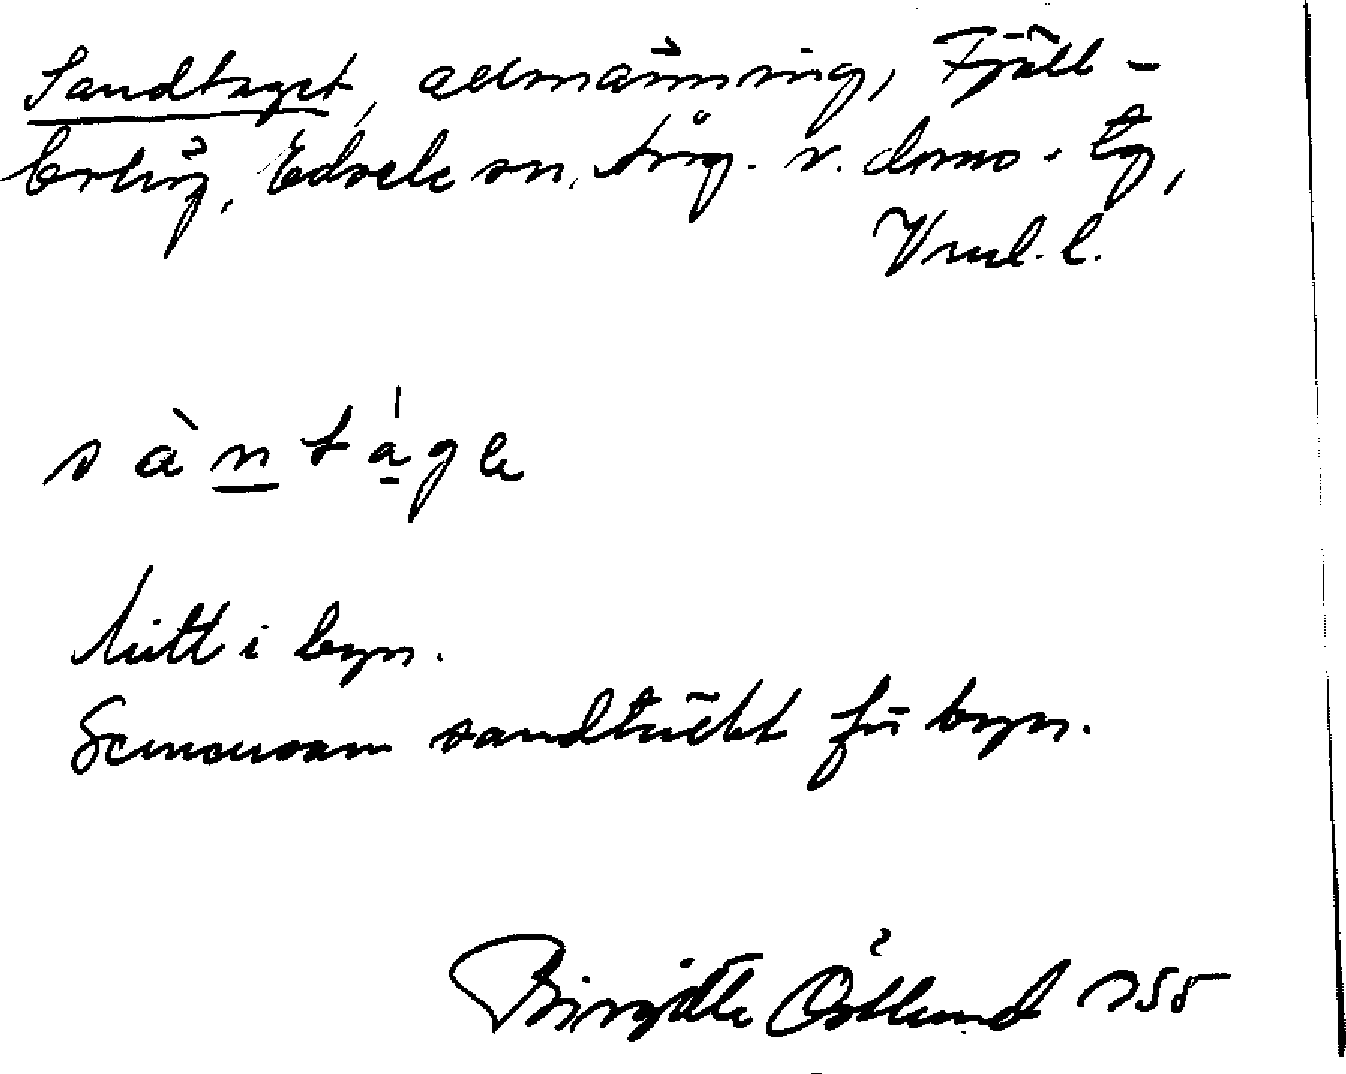 Sandtaget, allmänning, Fjäll-
bohög, Edsele sn, Ång. v. doms. tg,
Vnl. l.
sàntágle
Mitt i byn.
Gemensam sandtäkt för byn.
Birgitta Östlund 1955